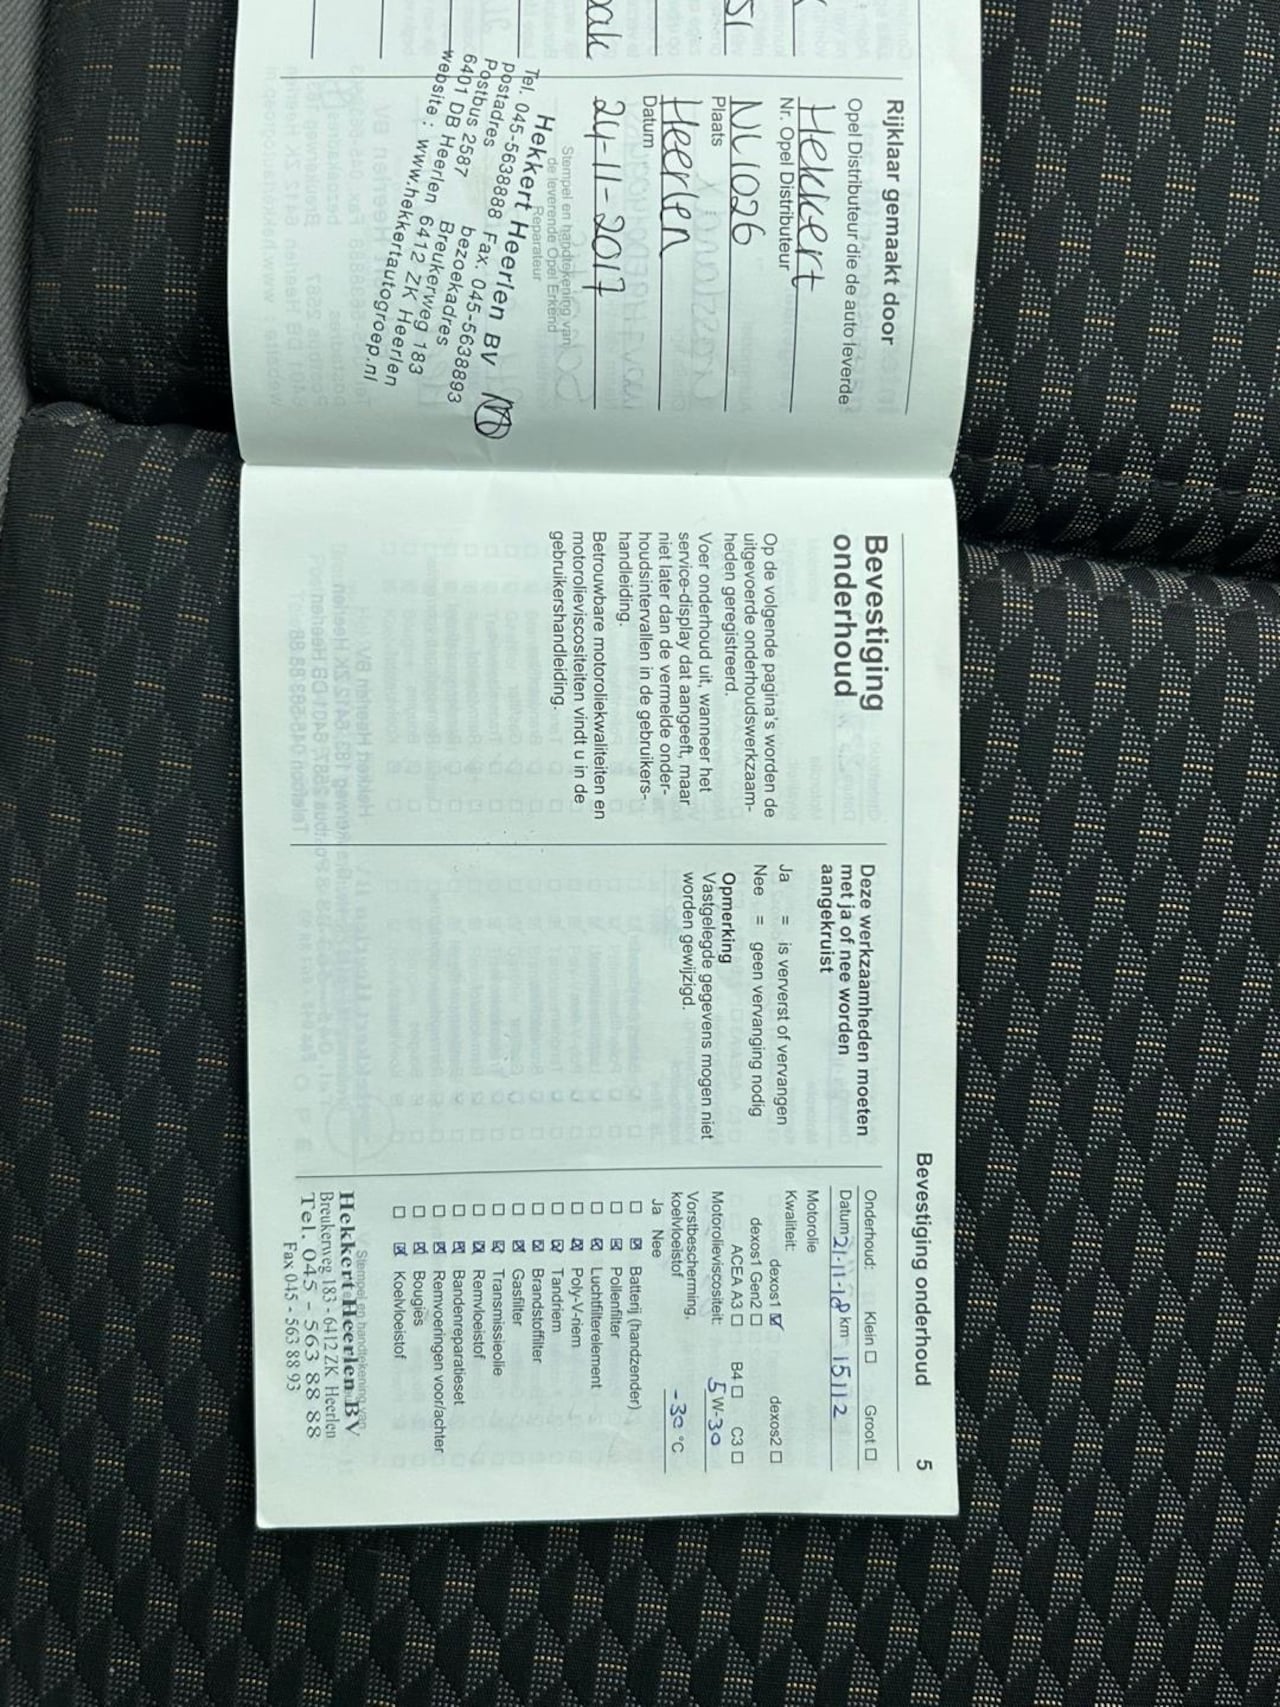 Rijklaar gemaakt door
Opel Distributeur die de auto leverde
Hekkert
Nr. Opel Distributeur
NL1026
Plaats
Heerlen
Datum
24-11-2017
Stempel en handtekening van
de leverende Opel Erkend
Reparateur
Hekkert Heerlen BV
Tel. 045-5638888 Fax. 045-5638893
postadres bezoekadres
Postbus 2587 Breukerweg 183
6401 DB Heerlen 6412 ZK Heerlen
website : www.hekkertautogroep.nl
Bevestiging onderhoud 5
Bevestiging
onderhoud
Op de volgende pagina's worden de
uitgevoerde onderhoudswerkzaam-
heden geregistreerd.
Voer onderhoud uit, wanneer het
service-display dat aangeeft, maar
niet later dan de vermelde onder-
houdsintervallen in de gebruikers-
handleiding.
Betrouwbare motoroliekwaliteiten en
motorolieviscositeiten vindt u in de
gebruikershandleiding.
Deze werkzaamheden moeten
met ja of nee worden
aangekruist
Ja = is ververst of vervangen
Nee = geen vervanging nodig
Opmerking
Vastgelegde gegevens mogen niet
worden gewijzigd.
Onderhoud: Klein ☐ Groot ☐
Datum 21-11-18 km 15112
Motorolie
Kwaliteit: dexos1 ☑ dexos2 ☐
dexos1 Gen2 ☐
ACEA A3 ☐ B4 ☐ C3 ☐
Motorolieviscositeit: 5W-30
Vorstbescherming,
koelvloeistof -30 °C
Ja Nee
☐ ☒ Batterij (handzender)
☐ ☒ Pollenfilter
☐ ☒ Luchtfilterelement
☐ ☒ Poly-V-riem
☐ ☒ Tandriem
☐ ☒ Brandstoffilter
☐ ☒ Gasfilter
☐ ☒ Transmissieolie
☐ ☒ Remvloeistof
☐ ☒ Bandenreparatieset
☐ ☒ Remvoeringen voor/achter
☐ ☒ Bougies
☐ ☒ Koelvloeistof
Stempel en handtekening van
Hekkert Heerlen BV
Breukerweg 183 - 6412 ZK Heerlen
Tel. 045 - 563 88 88
Fax 045 - 563 88 93